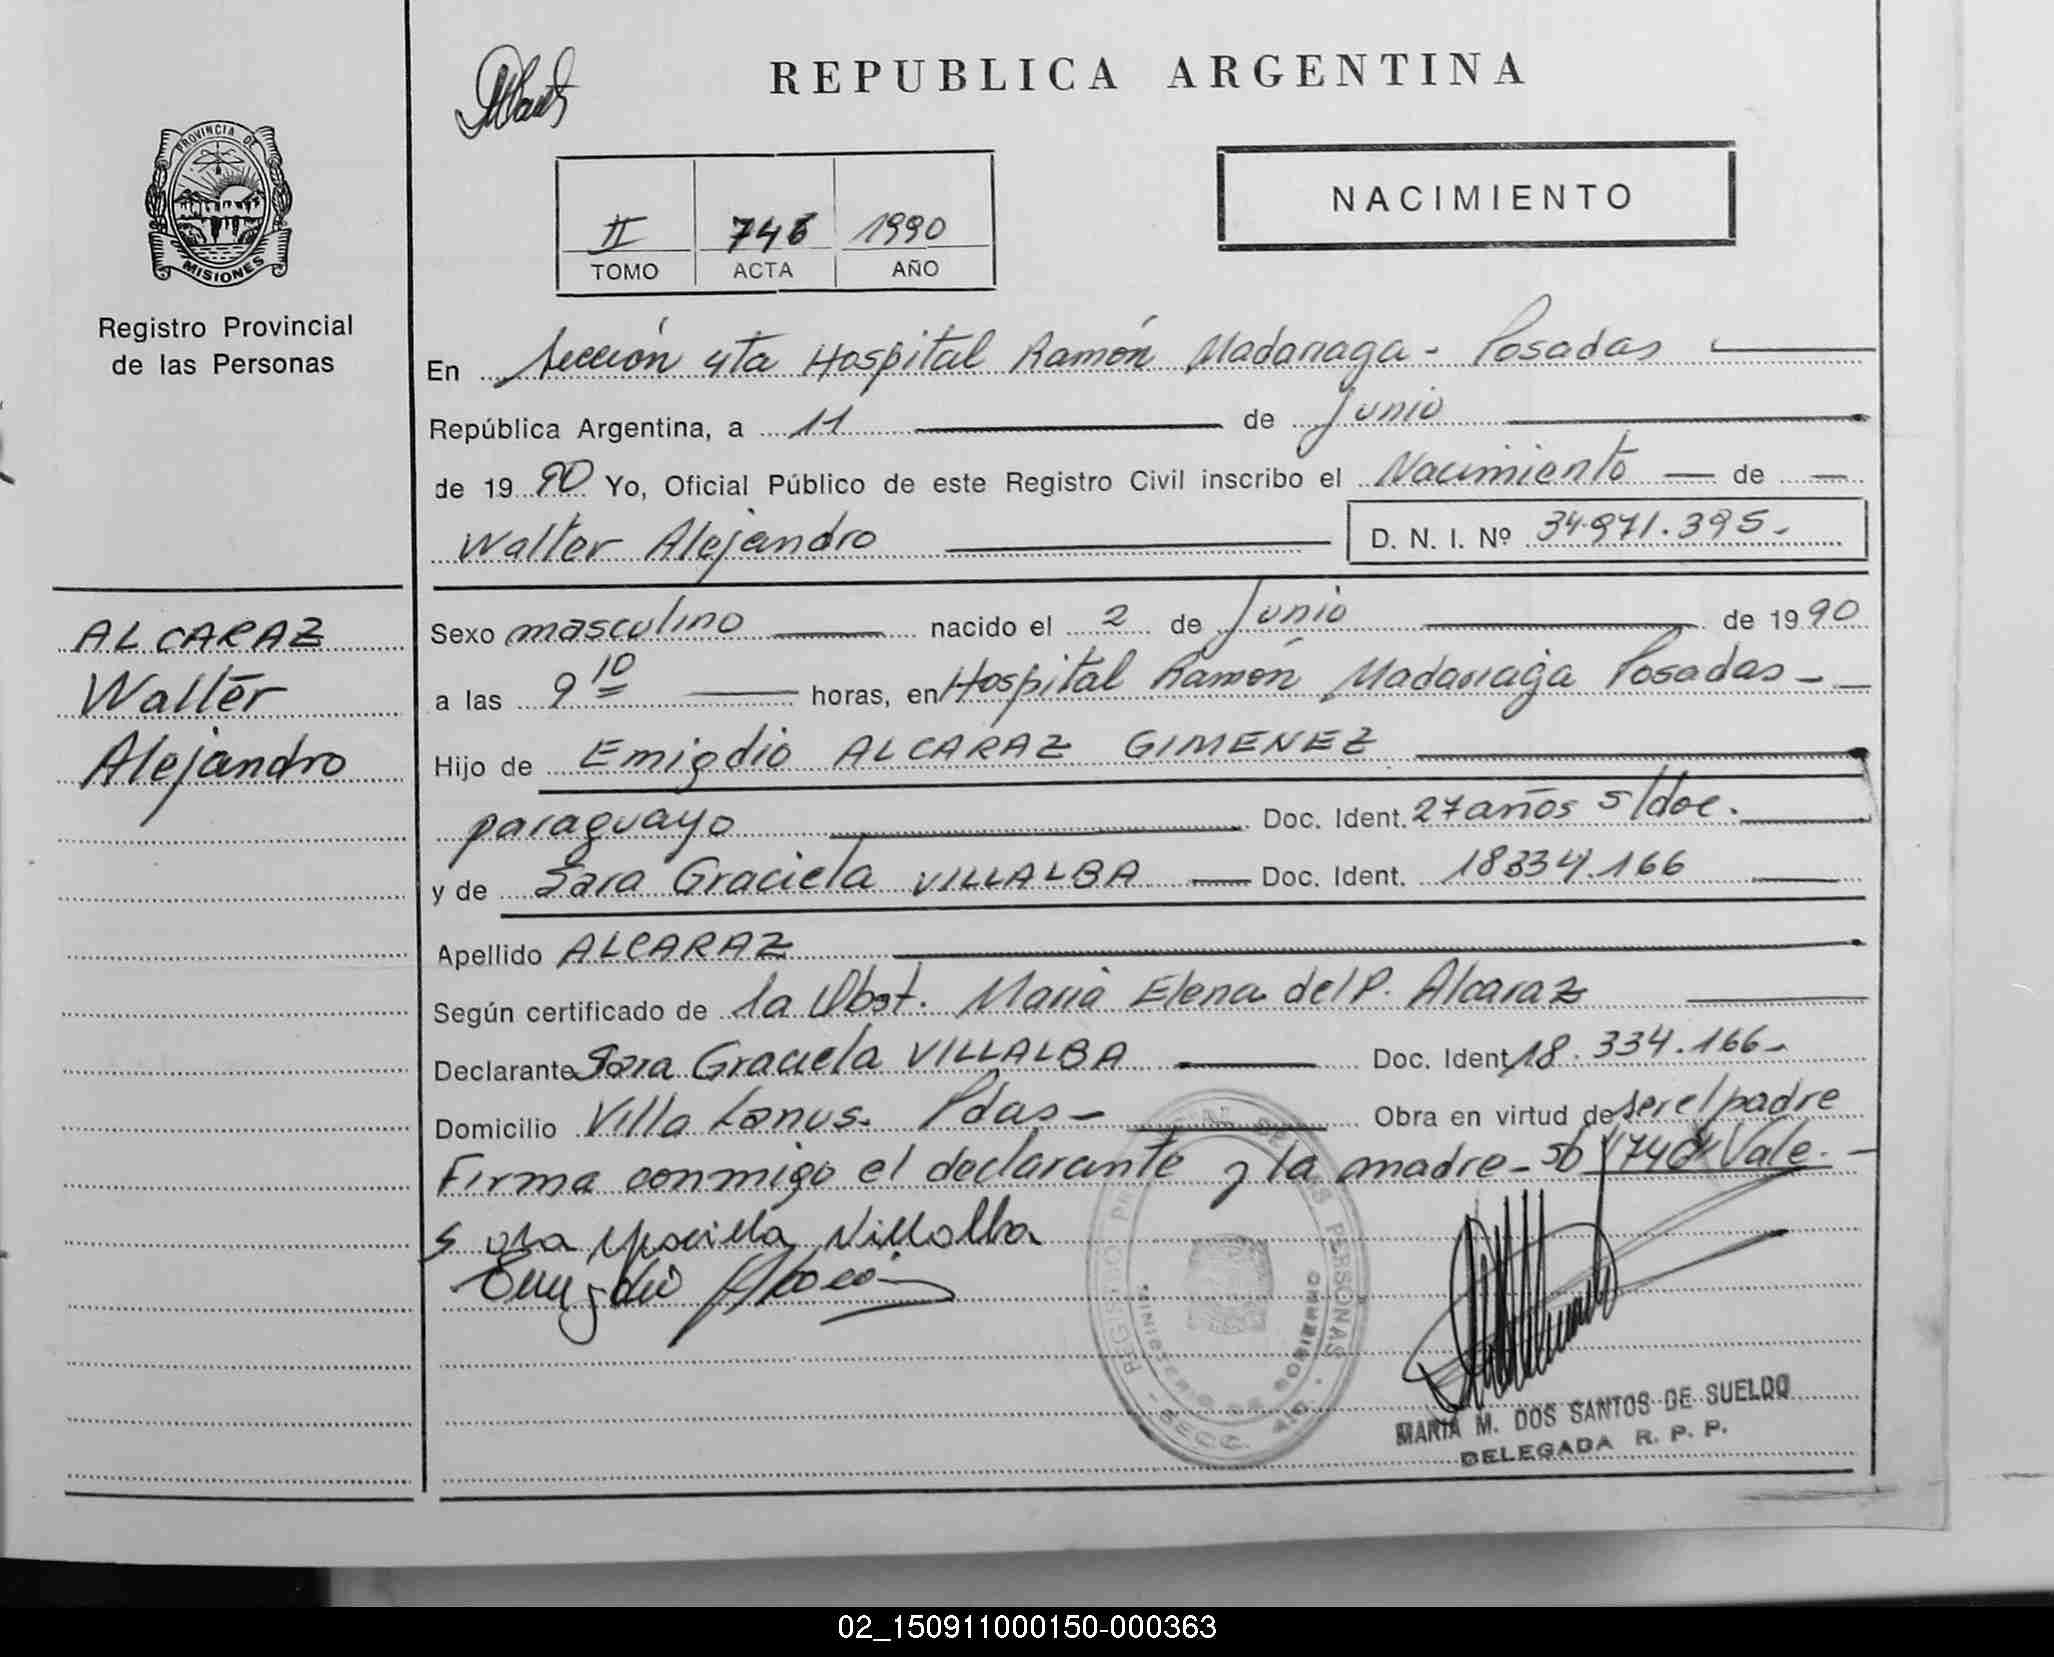 REPUBLICA ARGENTINA
PROVINCIA DE
MISIONES
Registro Provincial
de las Personas
NACIMIENTO
II 746 1990
TOMO ACTA AÑO
En Sección 4ta Hospital Ramón Madariaga - Posadas
República Argentina, a 11 de Junio
de 1990 Yo, Oficial Público de este Registro Civil inscribo el Nacimiento de
Walter Alejandro D. N. I. Nº 34.971.395.-
ALCARAZ
Walter
Alejandro
Sexo masculino nacido el 2 de Junio de 1990
a las 9 10 horas, en Hospital Ramón Madariaga Posadas -
Hijo de Emigdio ALCARAZ GIMENEZ
paraguayo Doc. Ident. 27 años s/doc.
y de Sara Graciela VILLALBA Doc. Ident. 18334.166
Apellido ALCARAZ
Según certificado de la Obst. Maria Elena del P. Alcaraz
Declarante Sara Graciela VILLALBA Doc. Ident. 18.334.166-
Domicilio Villa Lanus. Pdas- Obra en virtud de ser el padre
Firma conmigo el declarante y la madre - Vale. -
Sara Graciela Villalba
Emigdio
REGISTRO PROVINCIAL DE LAS PERSONAS
MINISTERIO DE GOBIERNO
SECC. 4ta.
MARIA M. DOS SANTOS DE SUELDO
DELEGADA R. P. P.
02_150911000150-000363